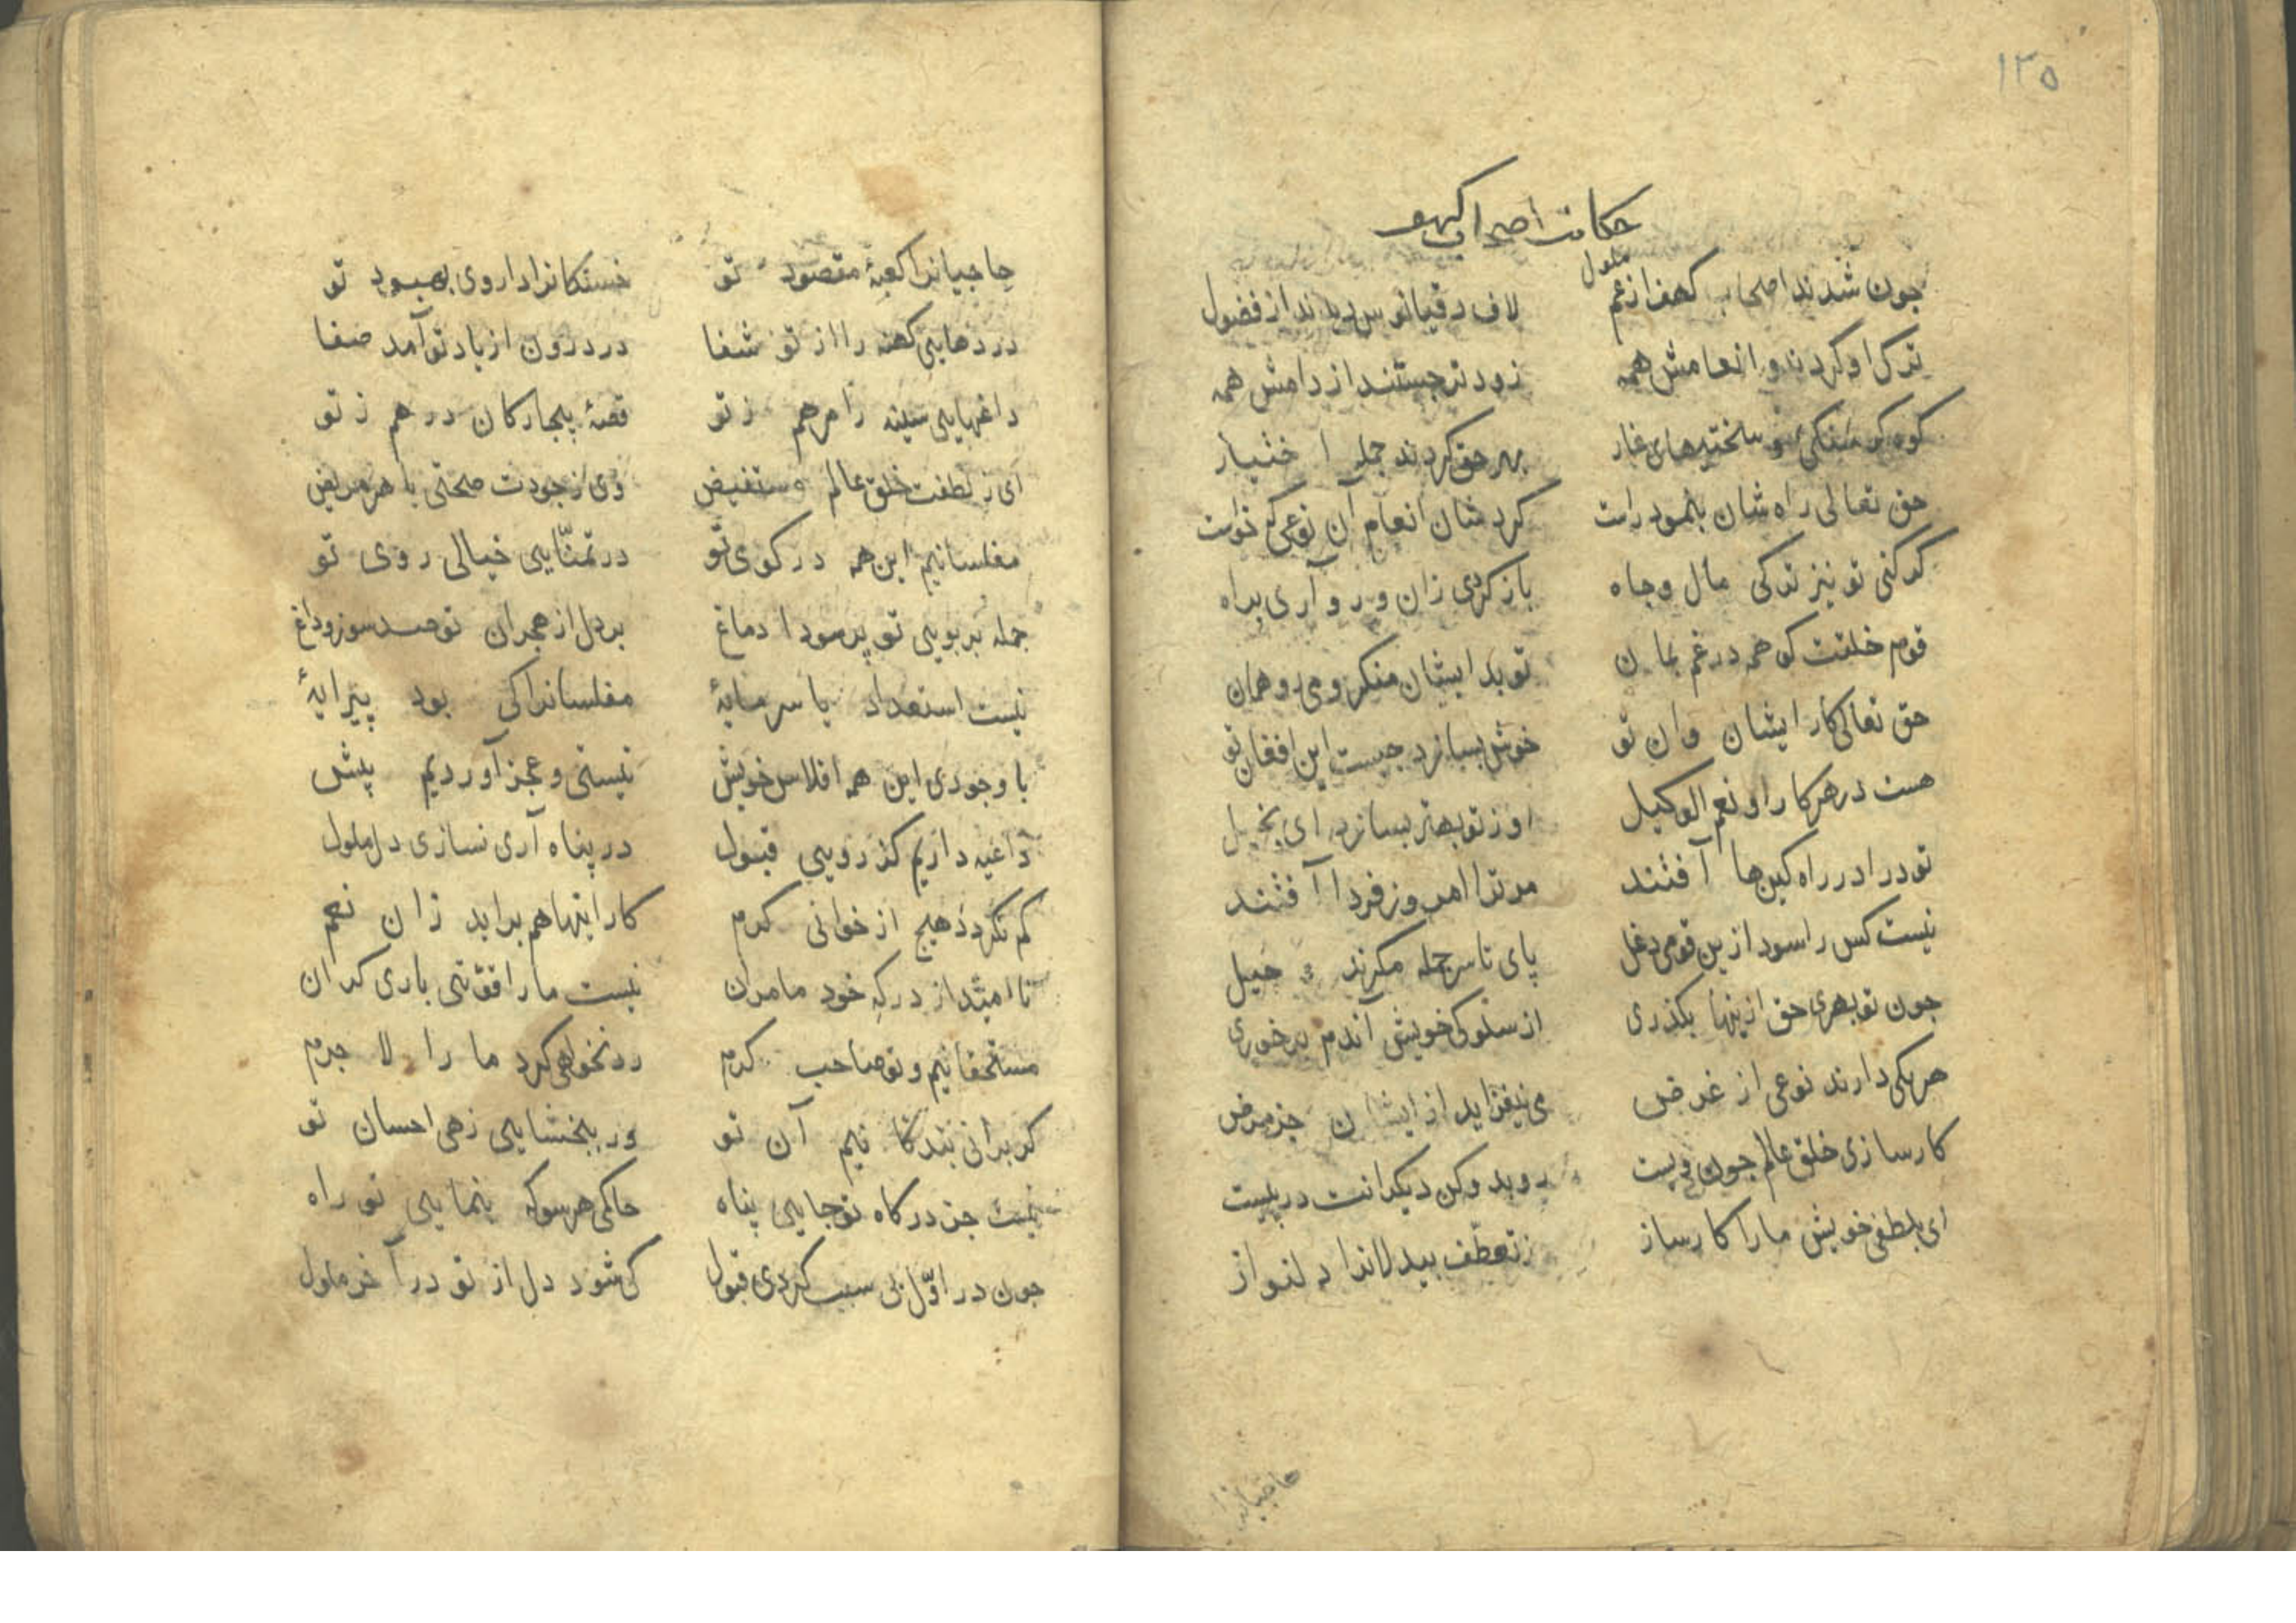 ١٢٥
حکایت اصحاب کهف
جون شدند اصحاب کهف از غم ملول لاف دقیانوس دیدند از فضول
ترک او کردند و انعامش همه زودتر جستند از دامش همه
کوه سنکی و سختیهای غار بهر حق کردند جمله اختیار
حق تعالی راه شان بنمود راست کرد شان انعام آن نوعی که خواست
کر کنی تو نیز ترکی مال و جاه باز کردی زان و رو آری براه
قوم خلقت کو همه در غم بمان تو بد ایشان منکر و می رو همان
حق تعالی کار ایشان وان تو خوش بسازد جیست این افغان تو
هست در هر کار او نعم الوکیل او ز تو بهتر بسازد ای بخیل
تو در ادر راه کین ها آفتند مر ترا امروز فردا آفتند
نیست کس را سود ازین قومی دغل پای تا سر جمله مکرند و حیل
جون تو بهری حق ازینها بکذری از سلوکی خویش آندم بر خوری
هر یکی دارند نوعی از غرض می نیفزاید از ایشان جز مرض
کارسازی خلق عالم جون ویست رو بدو کن دیکرانت در پیست
ای بلطفی خویش مارا کارساز ز تعطف بیدلانرا دلنواز
حاجیانرا
حاجیانرا کعبهٔ مقصود تو خستکانرا داروی بهبود تو
دردهایی کهنه را از تو شفا در درون از یاد تو آمد صفا
داغهایی سینه را مرهم ز تو قصهٔ بیجارکان درهم ز تو
ای ز لطفت خلق عالم مستفیض وی ز جودت صحتی با هر مریض
مفلسانیم این همه در کوی تو در تمنّایی خیالی روی تو
جمله بر بویی تو پر سودا دماغ بر دل از هجران تو صد سوز و داغ
نیست استعداد یا سرمایهٔ مفلسانرا کی بود پیرایهٔ
با وجودی این همه افلاس خویش نیستی و عجز آوردیم پیش
داعیه داریم کز رویی قبول در پناه آری نسازی دل ملول
کم نکردد هیج از خوانی کرم کار اینها هم براید زان نعم
ناامید از درکه خود مامران نیست مارا قوّتی باری کران
مستحقانیم و تو صاحب کرم رد نخواهی کرد ما را لا جرم
کر برانی بندکانیم آن تو ور ببخشایی زهی احسان تو
نیست جز درکاه تو جایی پناه حاکمی هر سو که بنمایی تو راه
جون در اوّل بی سبب کردی قبول کی شود دل از تو در آخر ملول